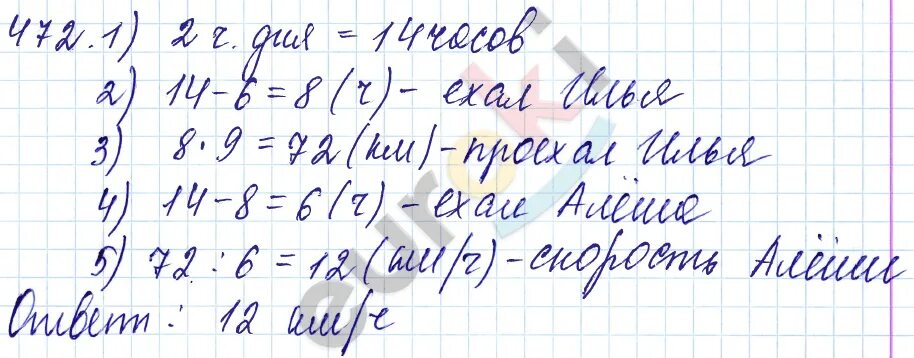 472. 1) 2 ч. дня = 14 часов
2) 14 - 6 = 8 (ч) - ехал Илья
3) 8 · 9 = 72 (км) - проехал Илья
4) 14 - 8 = 6 (ч) - ехал Алёша
5) 72 : 6 = 12 (км/ч) - скорость Алёши
Ответ: 12 км/ч
euroki